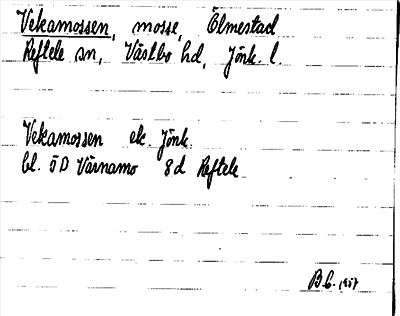 Vekamossen, mosse, Ölmestad
Reftele sn, Västbo hd, Jönk. l.
Vekamossen ek. Jönk.
bl. 5D Värnamo 8d Reftele
B.G. 1957